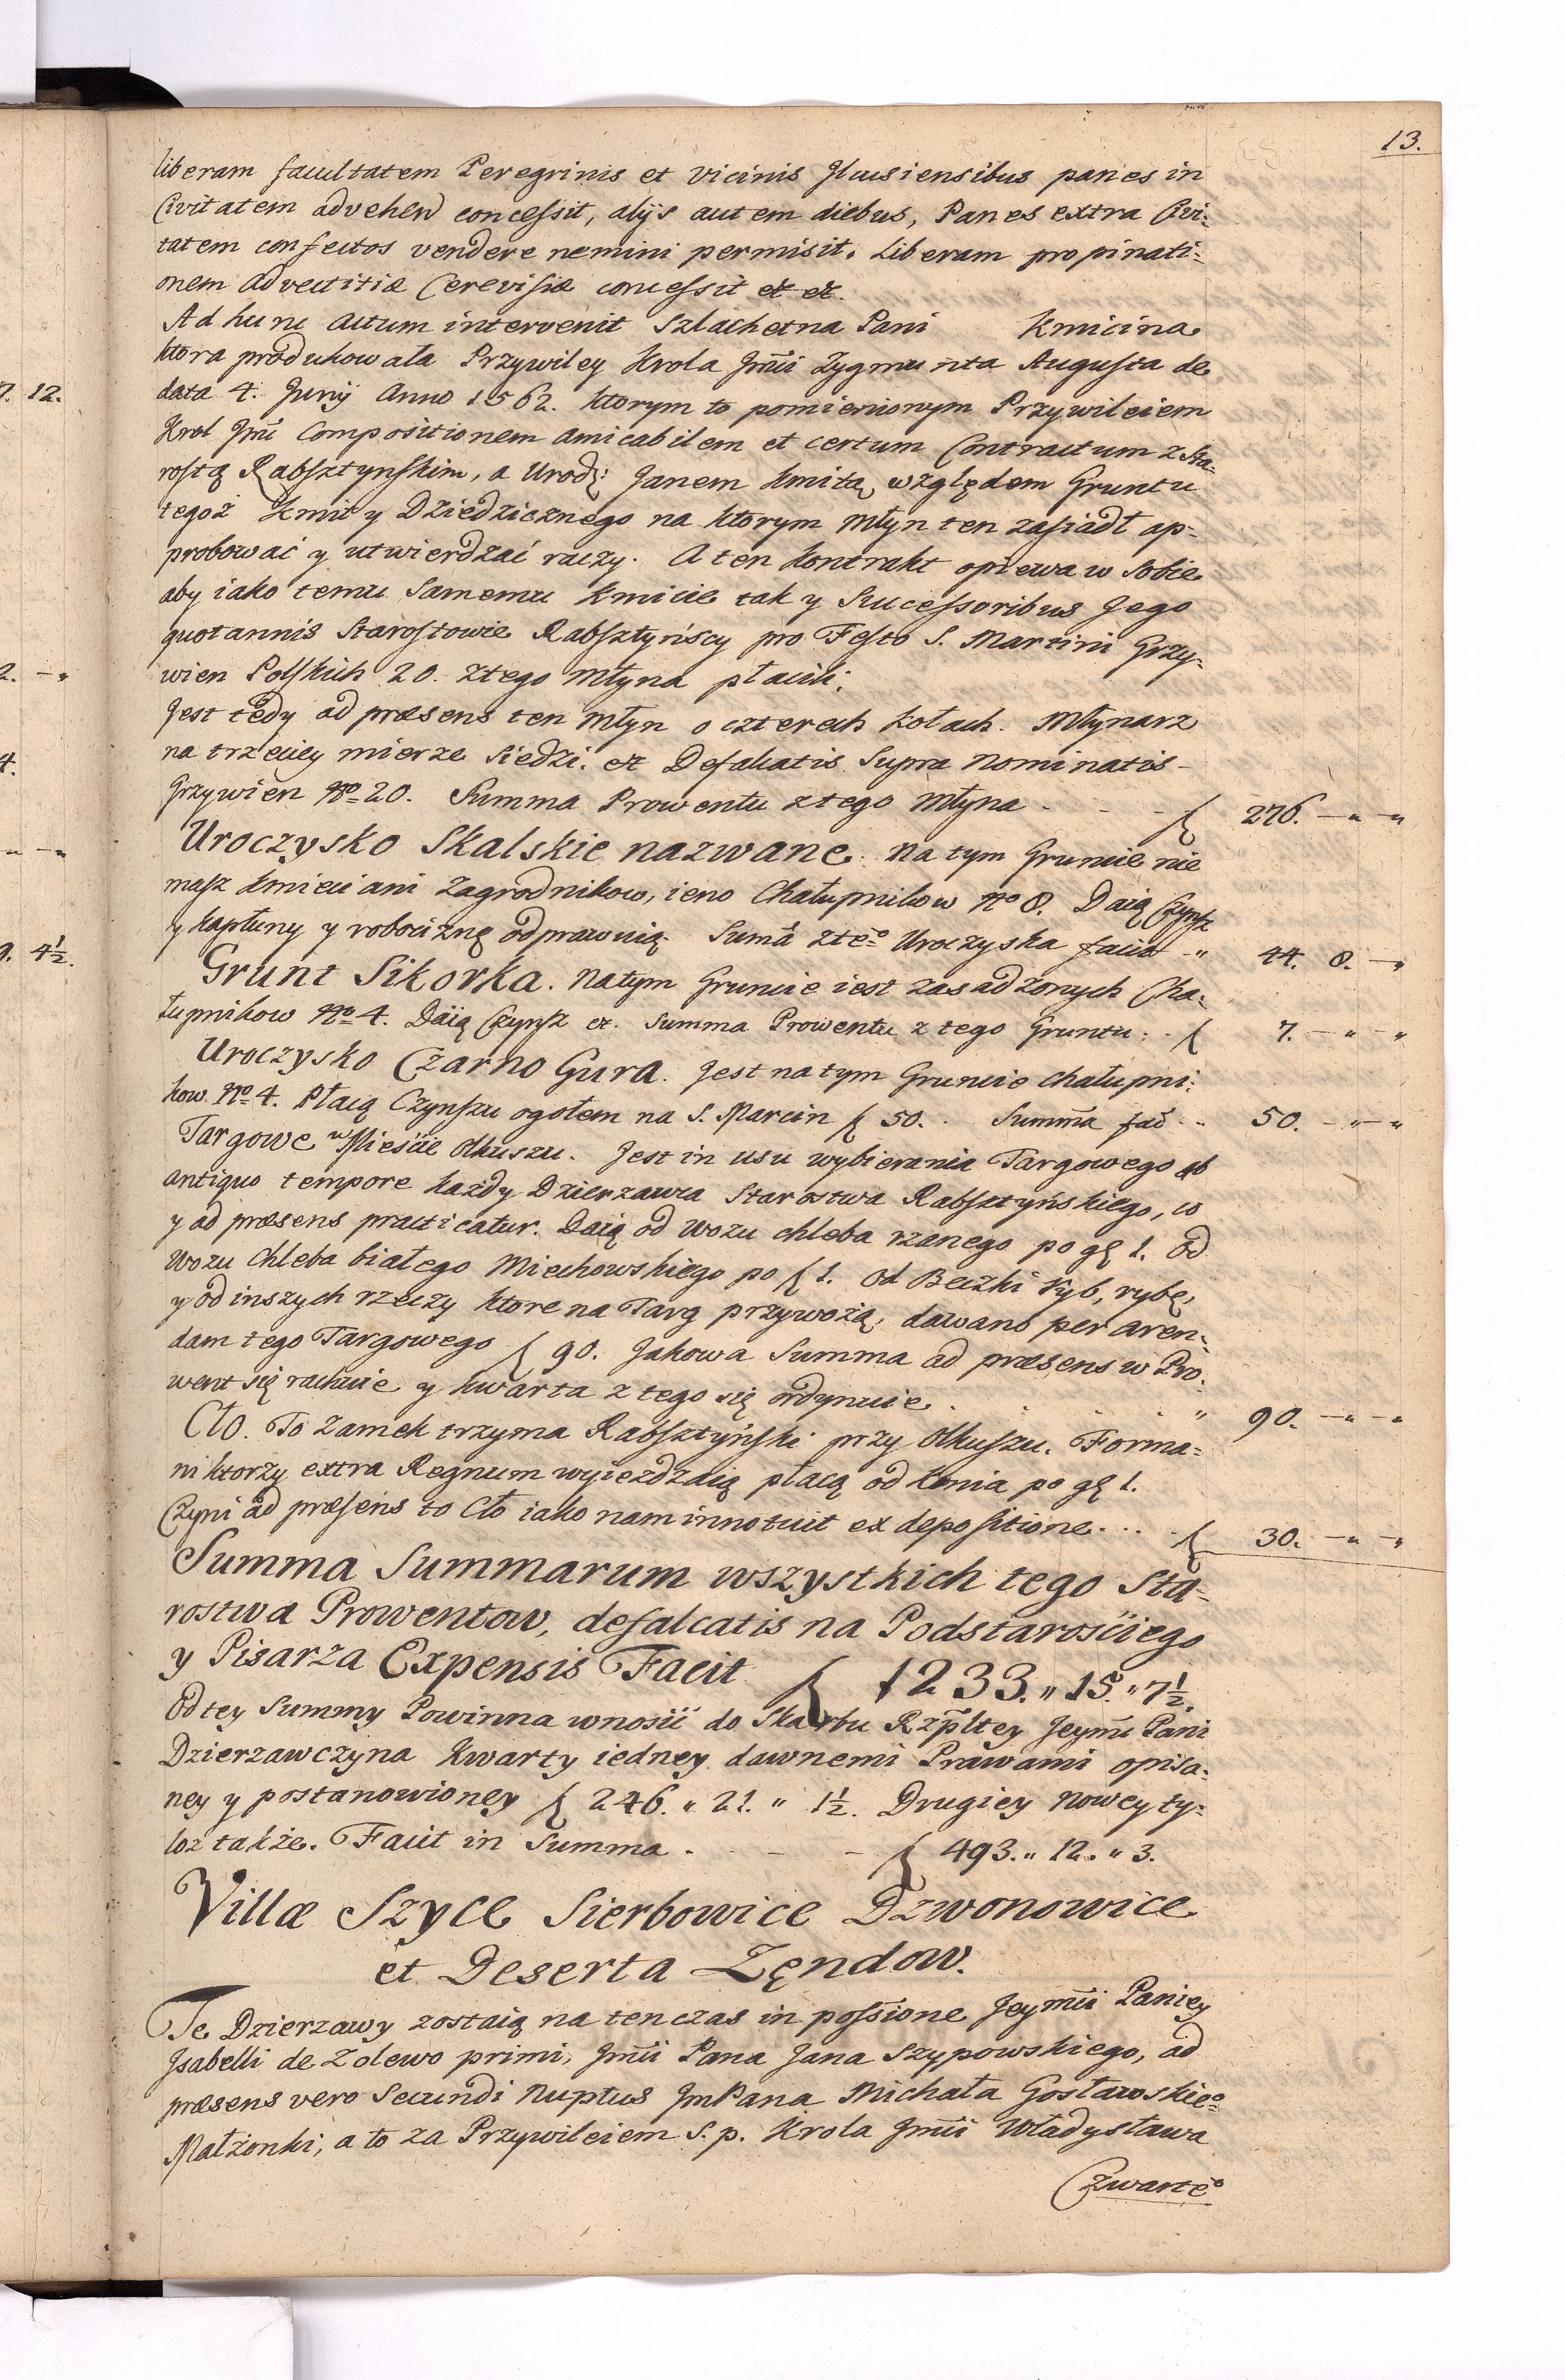 13.
liberam facultatem Peregrinis et vicinis Ilcusiensibus panes in
Civitatem advehend concessit, alijs autem diebus, Panes extra Civi:
tatem confectos vendere nemini permisit. Liberam propinati:
onem advectitiæ Cerevisiæ concessit et et.
Ad hunc actum intervenit Szlachetna Pani Kmicina
ktora produkowała Przywiley Krola Jmci Zygmunta Augusta de
data 4. Junij Anno 1562. ktorym to pomienionym Przywileiem
Krol Jmć Compositionem amicabilem et certum Contractum z Sta-
rostą Rabsztynskim, a Urodz: Janem Kmitą względem Gruntu
tegoż Kmity Dziedzicznego na ktorym Młyn ten zasiadł ap-
probować y utwierdzać raczy. A ten kontrakt opiewa w sobie
aby iako temu samemu Kmicie tak y Successoribus Jego
quotannis Starostowie Rabsztyńscy pro Festo S. Martini Grzy-
wien Polskich 20. z tego Młyna płacili.
Jest tedy ad præsens ten Młyn o czterech kołach. Młynarz
na trzeciey mierze siedzi. et Defalcatis supra nominatis
Grzywien No 20. Summa Prowentu z tego Młyna - - - f 276. — " — "
Uroczysko Skalskie nazwane. na tym Gruncie nie
masz kmieci ani Zagrodnikow, ieno Chałupnikow No 8. Daią Czynsz
y kapłuny y robociznę odprawuią. Suma z teo Uroczyska facit " 44. 8. — "
Grunt Sikorka. Na tym Gruncie iest zasadzonych Cha:
łupnikow No 4. Daią Czynsz et. Summa Prowentu z tego Gruntu: f 7. — " — "
Uroczysko Czarno Gura. Jest na tym Gruncie chałupni:
kow No 4. Płacą Czynszu ogołem na S. Marcin f 50. Summa fac. 50. — " — "
Targowe w Mieście Olkuszu. Jest in usu wybierania Targowego ab
antiquo tempore każdy Dzierzawca Starostwa Rabsztyńskiego, co
y ad præsens practicatur. Daią od wozu chleba rzanego po gr 1. od
wozu chleba białego Miechowskiego po f 1. od Beczki ryb, rybę,
y od inszych rzeczy ktore na Targ przywożą, dawano per aren-
dam tego Targowego f 90. Jakowa Summa ad præsens w Pro:
went się rachuie y kwarta z tego się ordynuie. . . . " 90. — " — "
Cło. To Zamek trzyma Rabsztyński przy Olkuszu. Forma=
ni ktorzy extra Regnum wyieżdzaią płacą od konia po gr 1.
Czyni ad præsens to Cło iako nam innotuit ex depositione. . . . f 30. — " — "
Summa Summarum wszystkich tego Sta-
rostwa Prowentow, defalcatis na Podstarościego
y Pisarza Expensis Facit f 1233. " 15. " 7½.
Od tey Summy Powinna wnosić do Skarbu Rzpltey Jeymć Pani
Dzierzawczyna Kwarty iedney dawnemi Prawami opisa:
ney y postanowioney f 246. " 21. " 1½. Drugiey nowey ty:
loż także. Facit in Summa . - - f 493. " 12. " 3.
Villæ Szyce Sierbowice Dzwonowice
et Deserta Zendow.
Te Dzierzawy zostaią na ten czas in possione Jeymci Paniey
Isabelli de Zolewo primi, Jmci Pana Jana Szypowskiego, ad
præsens vero Secundi nuptus Jm Pana Michała Gosławskieo
Małżonki, a to za Przywileiem S. p. Krola Jmci Władysława
Czwarteo
7. 12.
2. — "
4.
" — "
9. 4½.